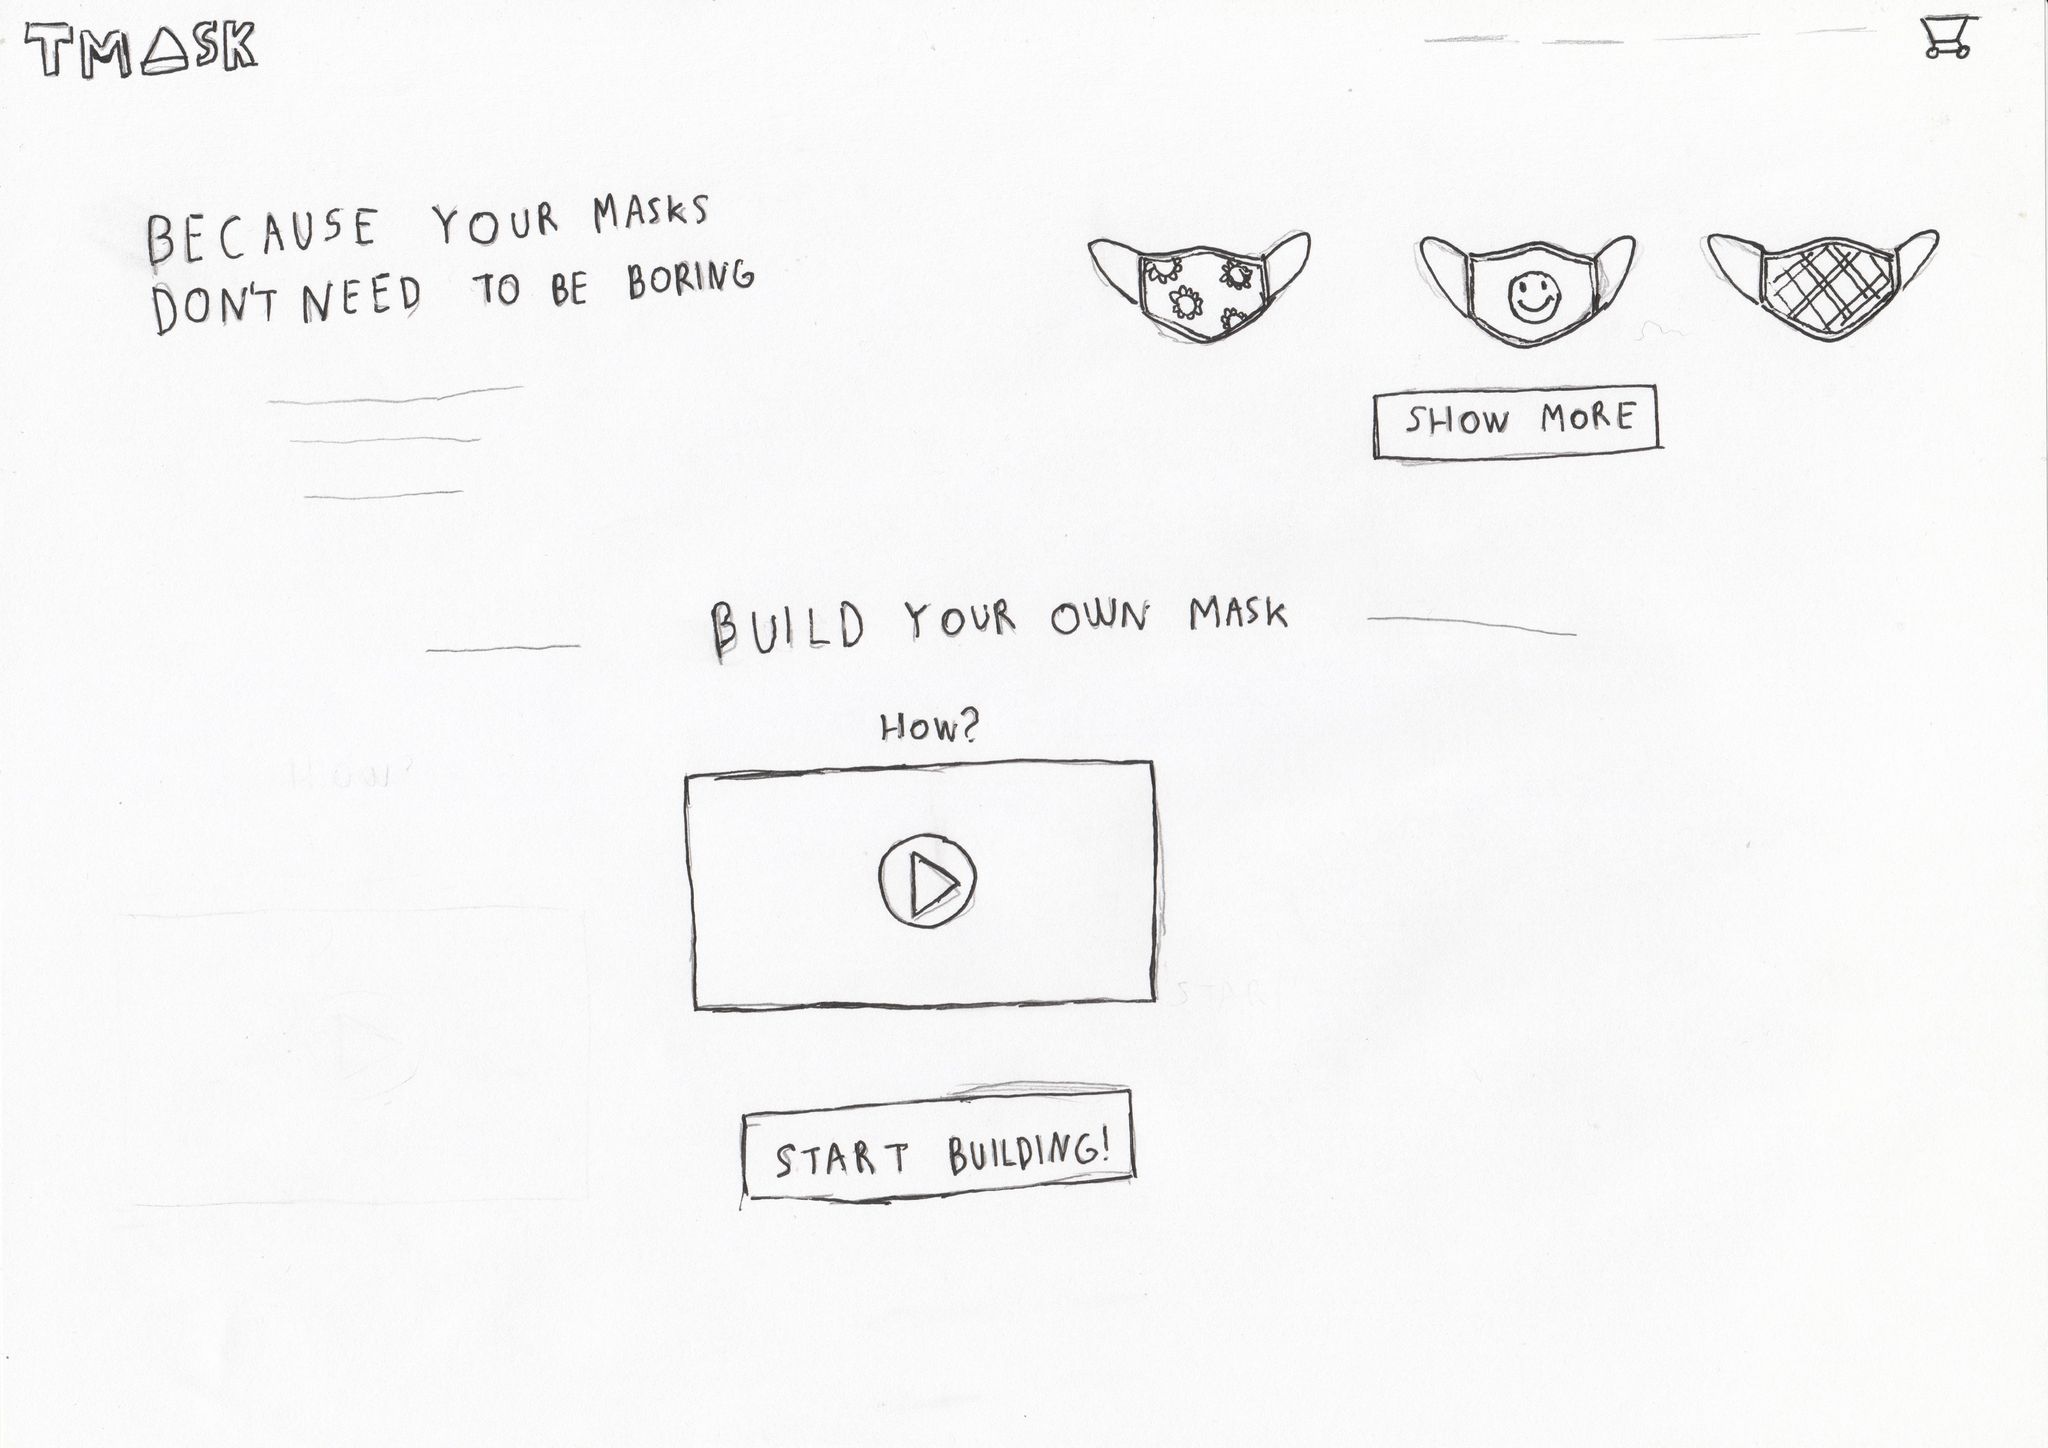 TMASK
BECAUSE YOUR MASKS
DON'T NEED TO BE BORING
SHOW MORE
BUILD YOUR OWN MASK
HOW?
START BUILDING!